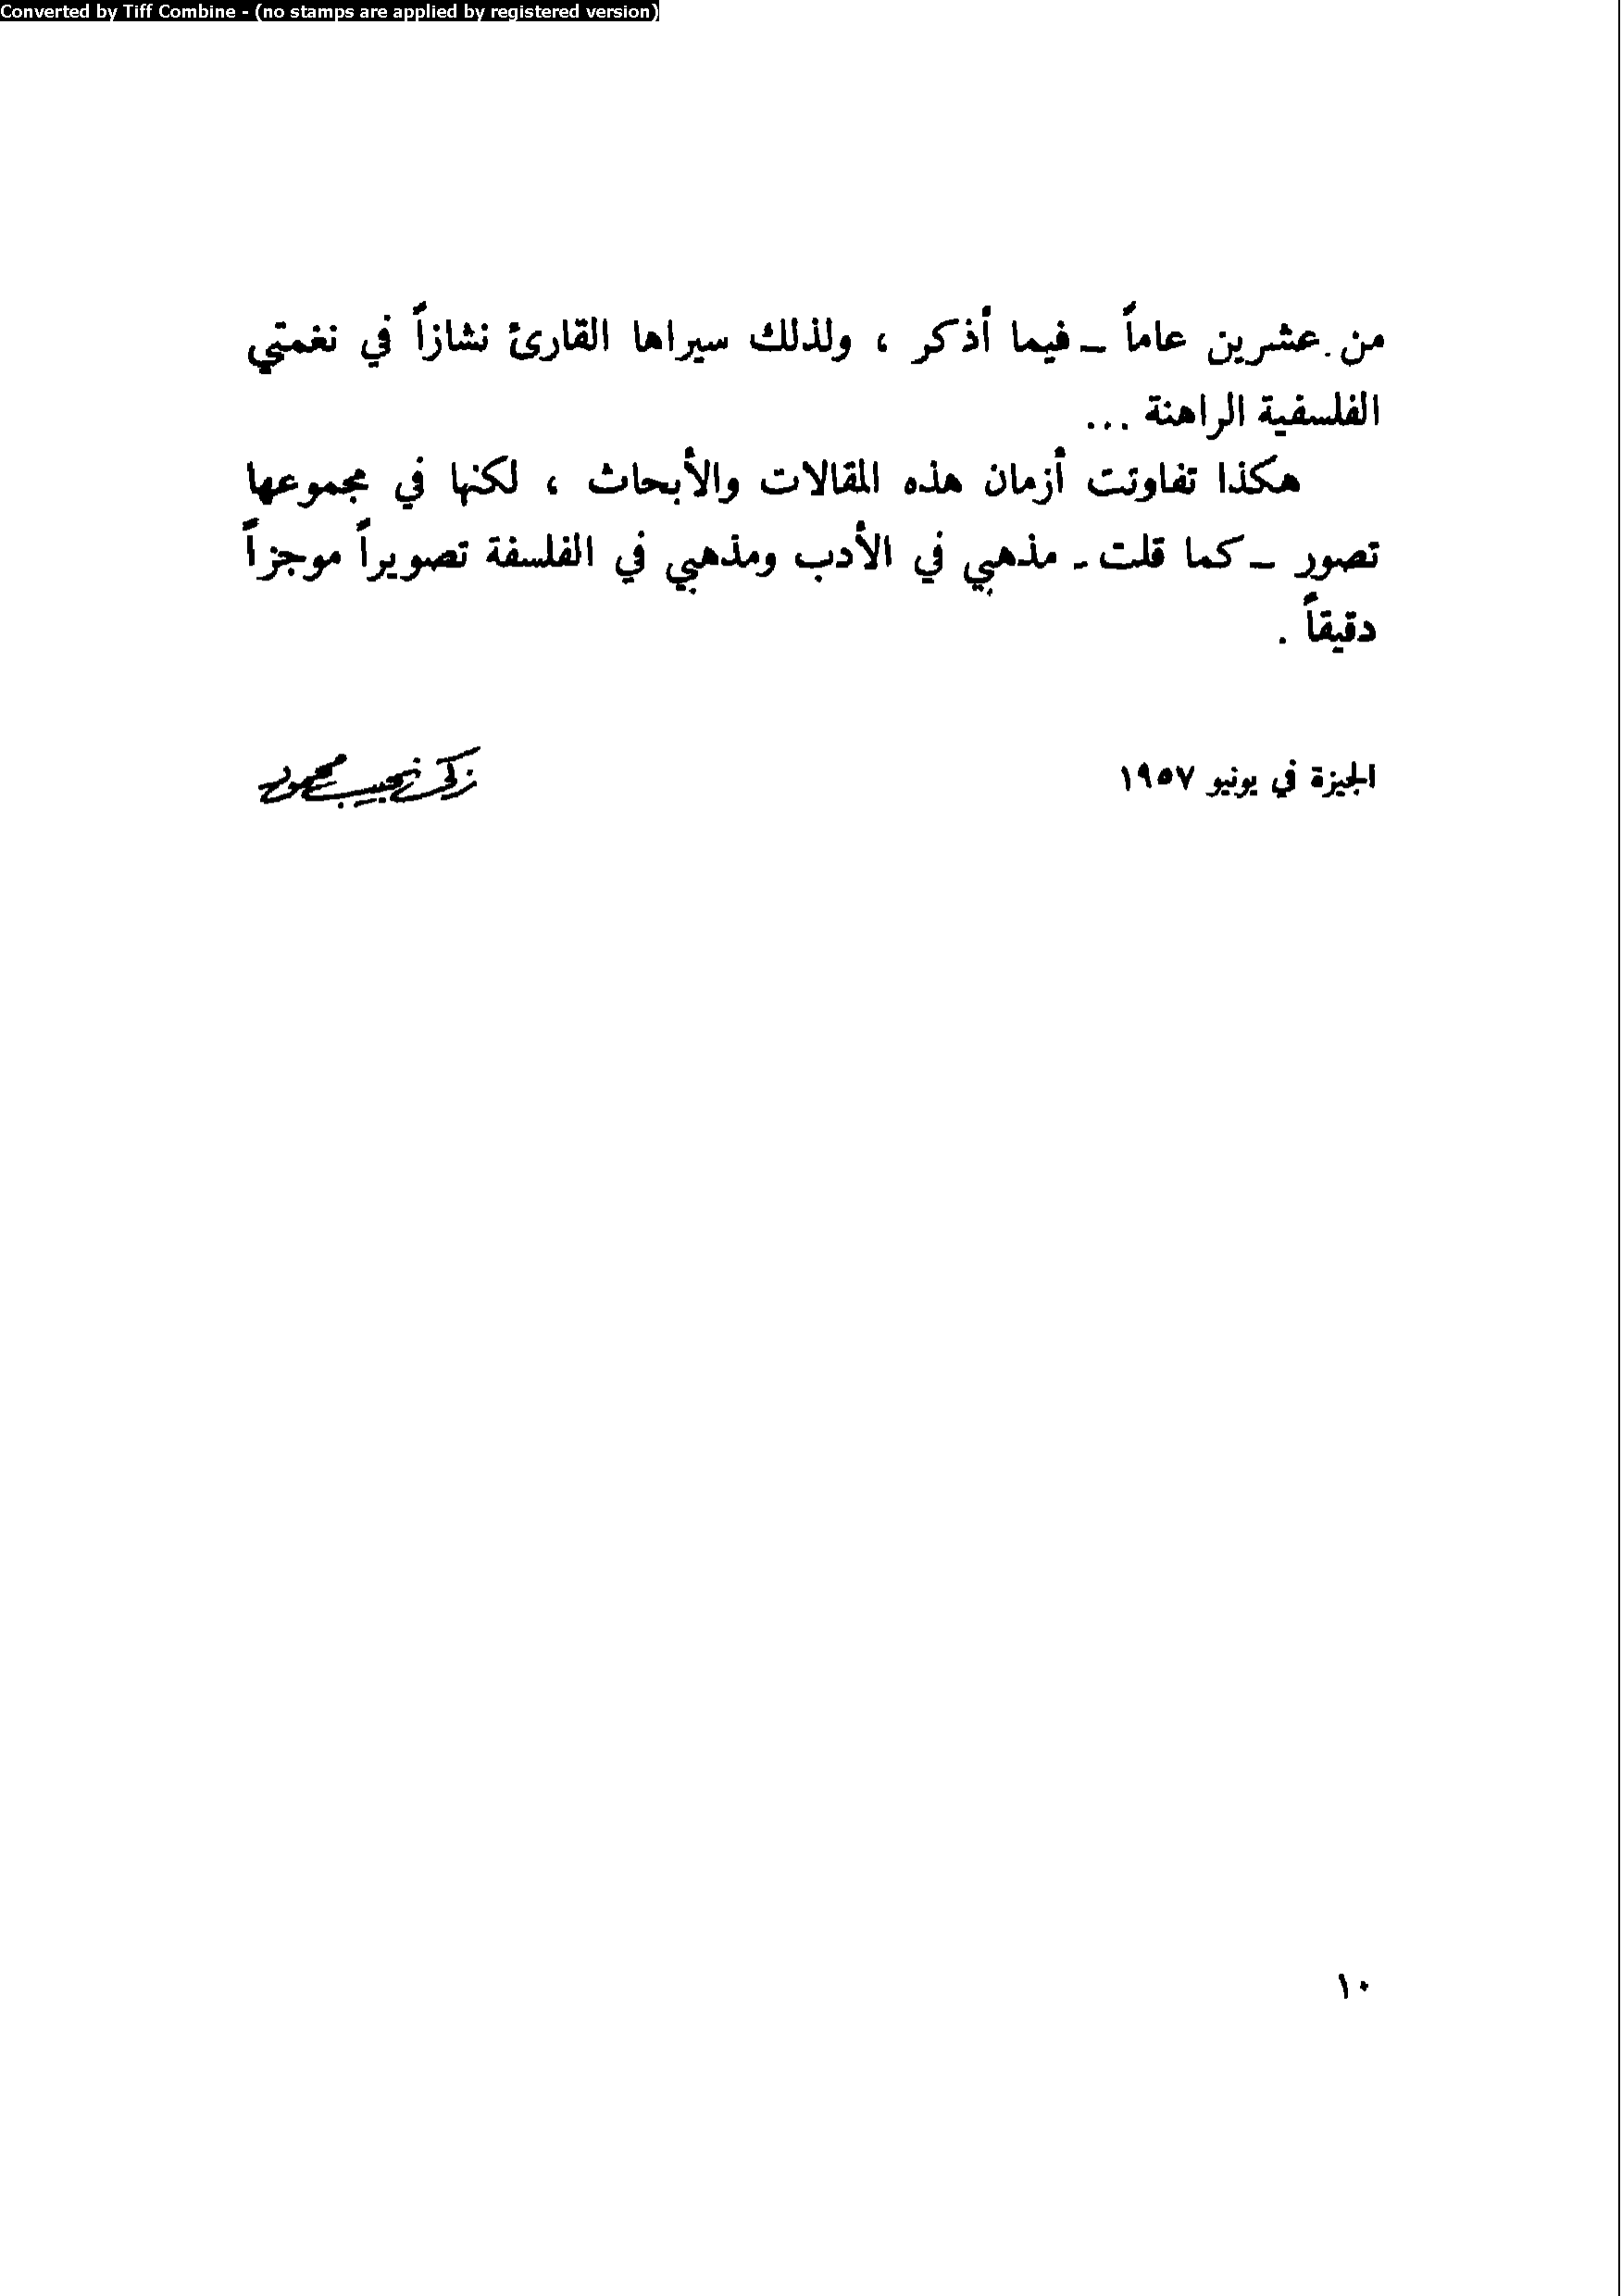 Converted by Tiff Combine - (no stamps are applied by registered version)
من عشرين عاماً – فيما أذكر ، ولذلك سيراها القارئ نشازاً في نغمتي
الفلسفية الراهنة ...
هكذا تفاوتت أزمان هذه المقالات والأبحاث ، لكنها في مجموعها
تصور – كما قلت - مذهبي في الأدب ومذهبي في الفلسفة تصويراً موجزاً
دقيقاً .
الجيزة في يونيو ١٩٥٧
زكي نجيب محمود
١٠